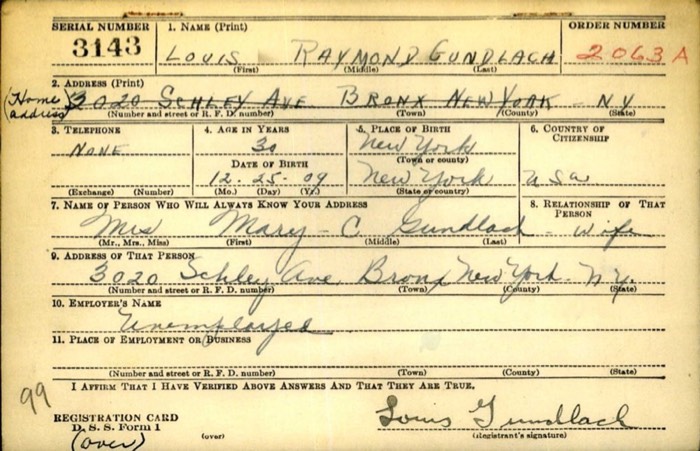 SERIAL NUMBER 1. NAME (Print) ORDER NUMBER
3143 LOUIS RAYMOND GUNDLACH 2063 A
(First) (Middle) (Last)
2. ADDRESS (Print)
(Home address) 3020 SCHLEY AVE BRONX NEW YORK - NY
(Number and street or R. F. D. number) (Town) (County) (State)
3. TELEPHONE 4. AGE IN YEARS 5. PLACE OF BIRTH 6. COUNTRY OF CITIZENSHIP
NONE 30 New York
(Town or county)
DATE OF BIRTH
12-25-09 New York USA
(Exchange) (Number) (Mo.) (Day) (Yr.) (State or country)
7. NAME OF PERSON WHO WILL ALWAYS KNOW YOUR ADDRESS 8. RELATIONSHIP OF THAT PERSON
Mrs Mary - C Gundlach - wife
(Mr., Mrs., Miss) (First) (Middle) (Last)
9. ADDRESS OF THAT PERSON
3020 Schley Ave, Bronx New York - N.Y.
(Number and street or R. F. D. number) (Town) (County) (State)
10. EMPLOYER'S NAME
Unemployed
11. PLACE OF EMPLOYMENT OR BUSINESS
(Number and street or R. F. D. number) (Town) (County) (State)
I AFFIRM THAT I HAVE VERIFIED ABOVE ANSWERS AND THAT THEY ARE TRUE.
99
REGISTRATION CARD Louis Gundlach
D. S. S. Form 1 (over) (Registrant's signature)
(over)